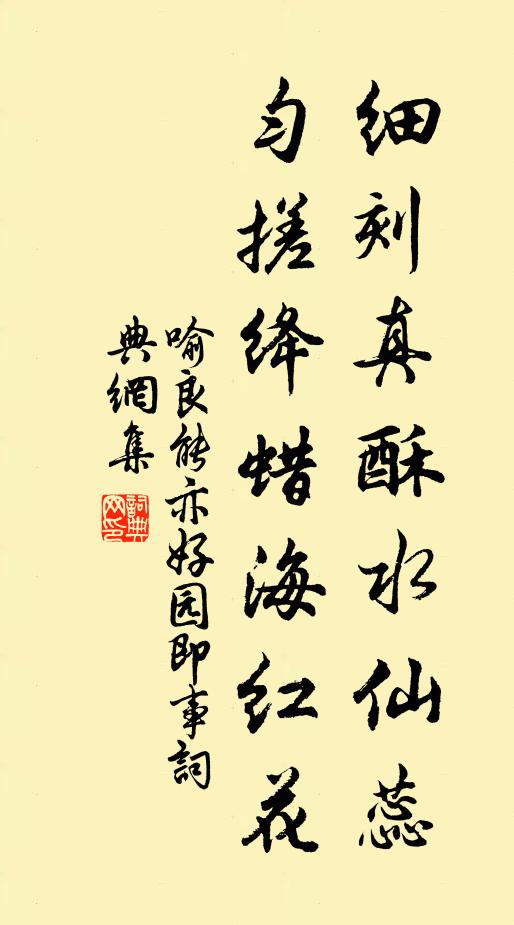 细刻真酥水仙蕊
匀搓绛蜡海红花
喻良能亦好园即事詞
典網集
詞典网印